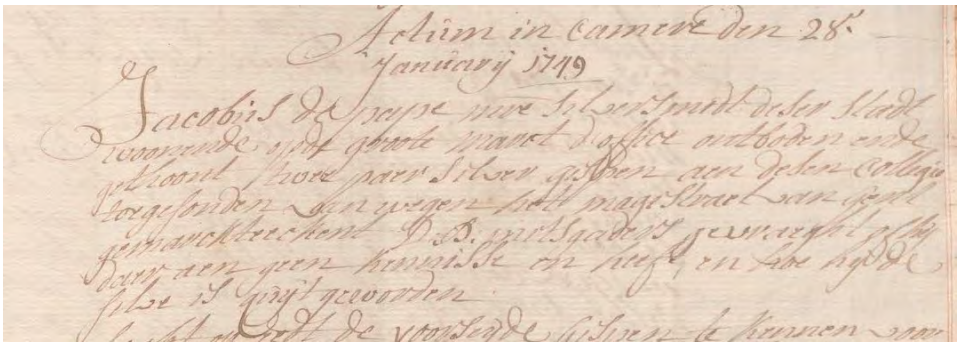 Actum in camere den 28.
January 1749
Jacobus de pape mre silversmedt deser stadt
woonende opde groote marct d'office ontboden ende
gethoont twee paer silver gespen aen desen collegie
toegesonden van wegen het magistraet van gent
gemarckteeckent D.B. mitsgaders gevraeght of hij
daer aen geen kennisse en heeft, en hoe hij de
selve is quijt geworden.
de voorseyde gispen te kennen voor